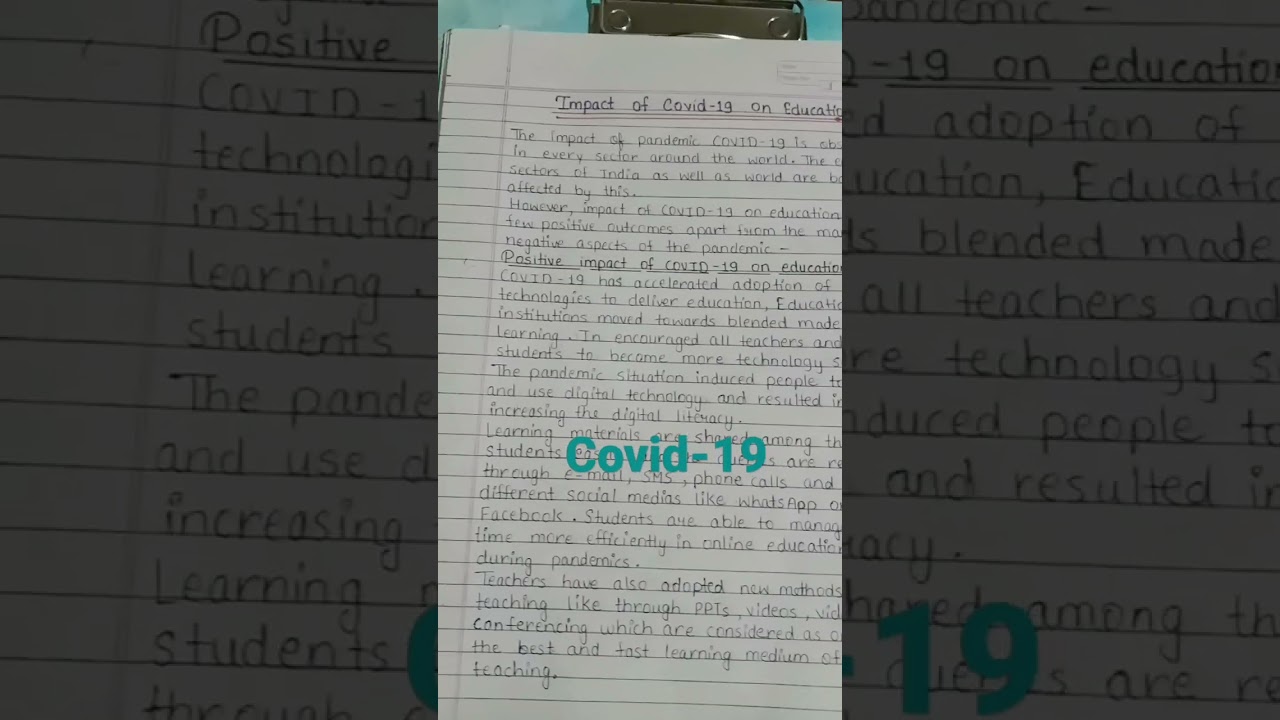 Impact of Covid-19 on Educatio
The impact of pandemic COVID-19 is obs
in every sector around the world. The
sectors of India as well as world are ba
affected by this.
However, impact of COVID-19 on education
few positive outcomes apart from the ma
negative aspects of the pandemic -
Positive impact of COVID-19 on educatio
COVID-19 has accelerated adoption of
technologies to deliver education, Educatio
institutions moved towards blended made
learning. In encouraged all teachers and
students to become more technology s
The pandemic situation induced people to
and use digital technology and resulted in
increasing the digital literacy.
Learning materials are shared among th
students are re
Covid-19
through e-mail, SMS, phone calls and
different social medias like WhatsApp or
Facebook. Students are able to manag
time more efficiently in online education
during pandemics.
Teachers have also adopted new methods
teaching like through PPTs, videos, vid
conferencing which are considered as o
the best and fast learning medium of
teaching.